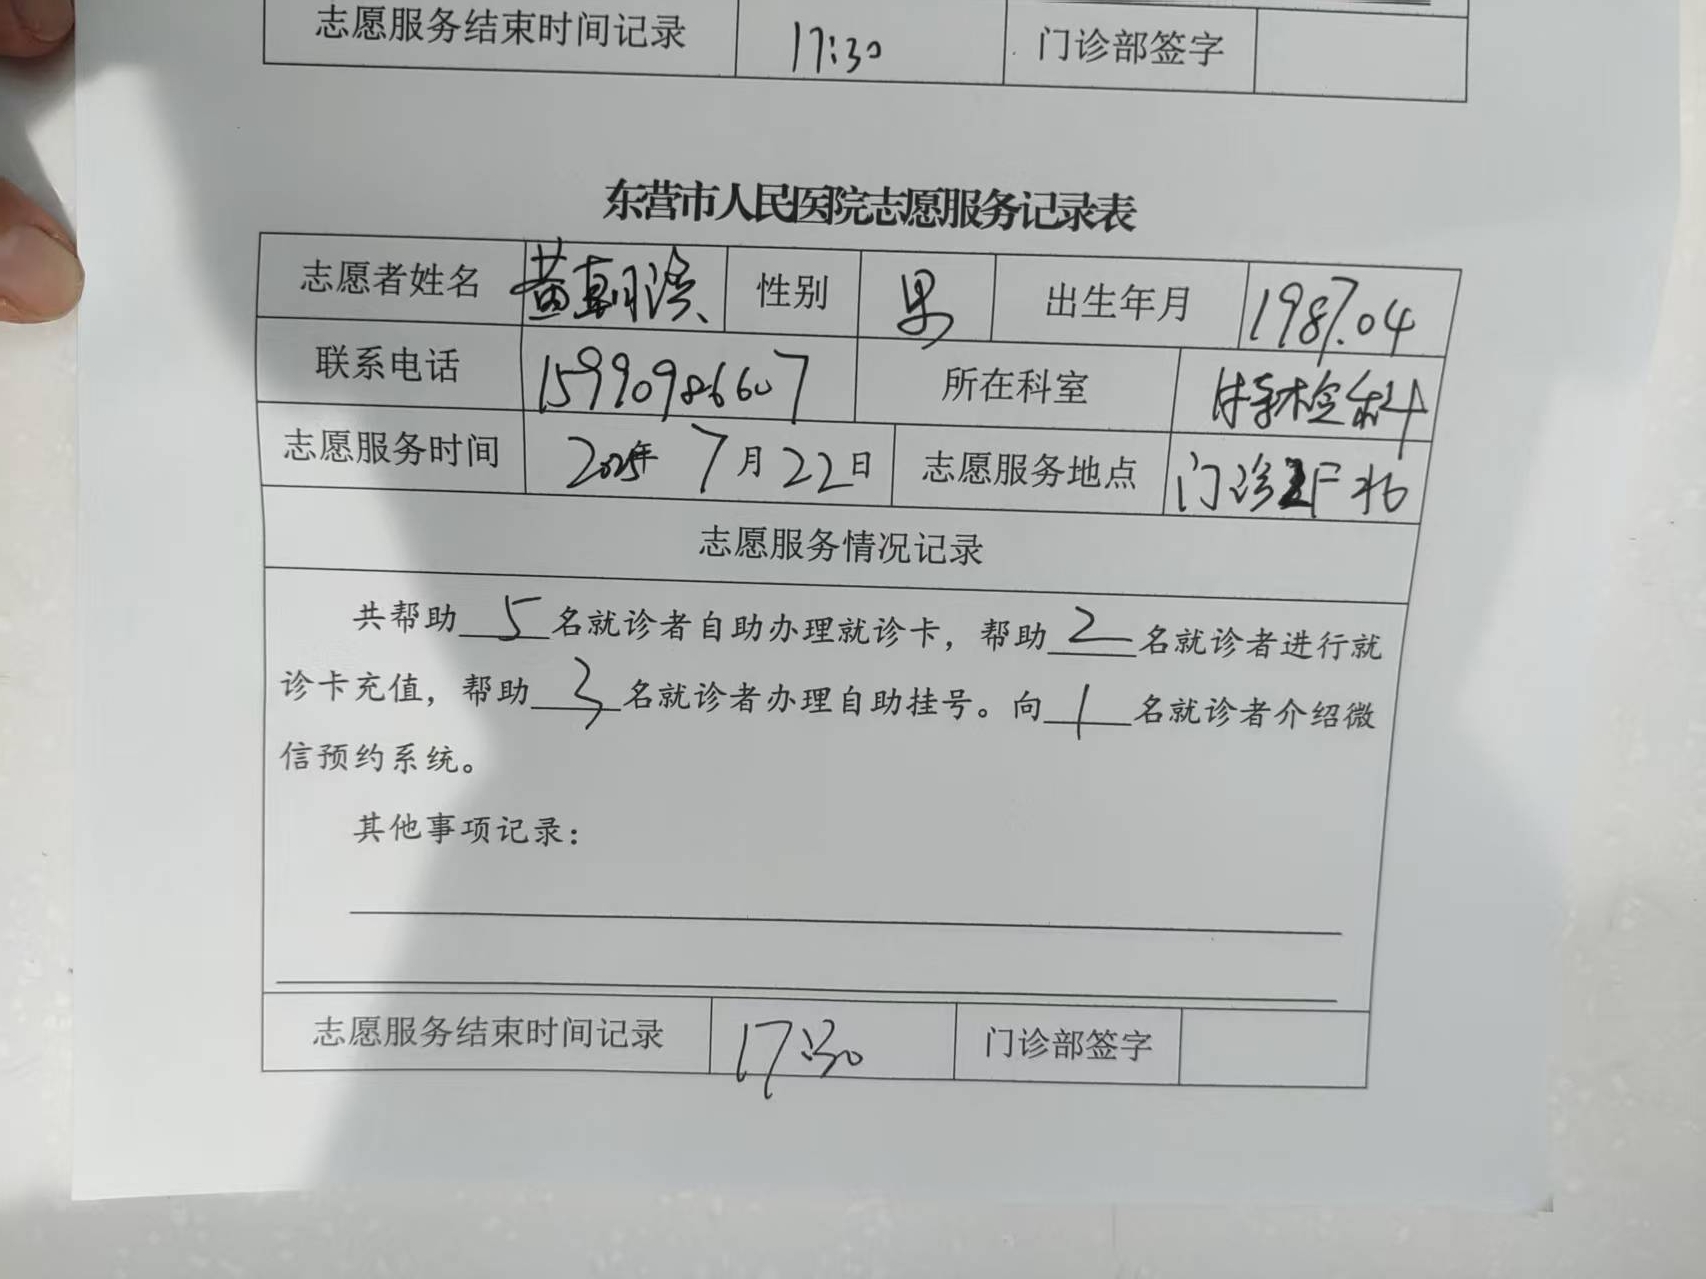 志愿服务结束时间记录 17:30 门诊部签字
东营市人民医院志愿服务记录表
志愿者姓名 黄朝滨 性别 男 出生年月 1987.04
联系电话 15990986607 所在科室 特检科
志愿服务时间 2025年 7月22日 志愿服务地点 门诊2F北
志愿服务情况记录
共帮助5名就诊者自助办理就诊卡，帮助2名就诊者进行就
诊卡充值，帮助3名就诊者办理自助挂号。向1名就诊者介绍微
信预约系统。
其他事项记录：
志愿服务结束时间记录 17:30 门诊部签字